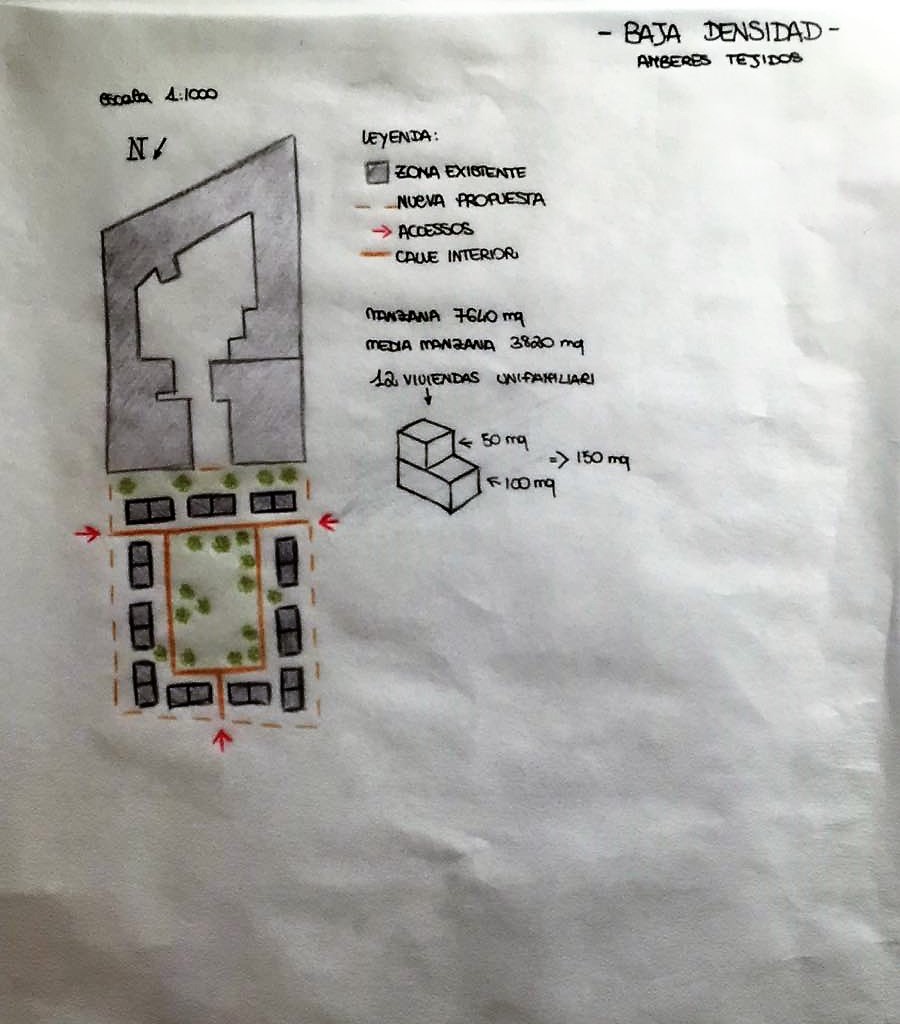 - BAJA DENSIDAD -
AMBERES TEJIDOS
escala 1:1000
N
LEYENDA:
ZONA EXISTENTE
NUEVA PROPUESTA
ACCESSOS
CALLE INTERIOR
MANZANA 7640 mq
MEDIA MANZANA 3820 mq
12 VIVIENDAS UNIFAMILIARI
50 mq
=> 150 mq
100 mq